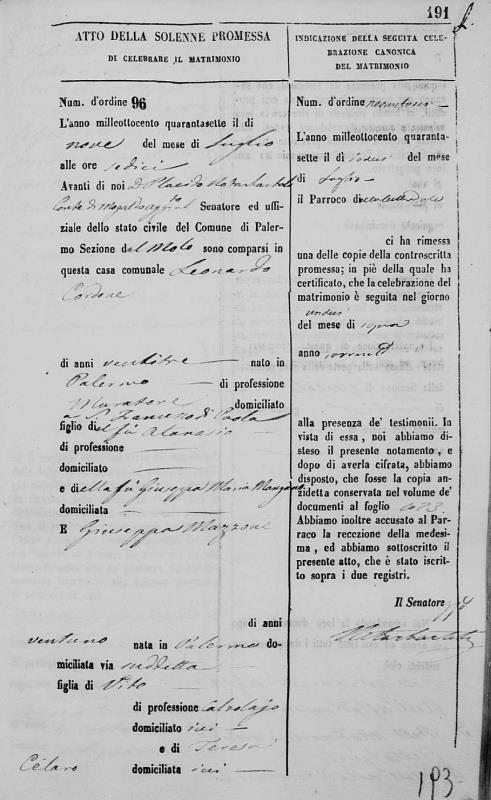 191
ATTO DELLA SOLENNE PROMESSA
DI CELEBRARE IL MATRIMONIO
Num. d'ordine 96
L'anno milleottocento quarantasette il dì
nove del mese di Luglio
alle ore sedici
Avanti di noi D. Placido Notarbartolo
Conte di Senatore ed uffi-
ziale dello stato civile del Comune di Paler-
mo Sezione del Molo sono comparsi in
questa casa comunale Leonardo
Cordone
di anni ventitre nato in
Palermo di professione
Muratore domiciliato
a S. Francesco di Paola
figlio del fu Atanasio
di professione
domiciliato
e di della fu Giuseppa Maria
domiciliata
E Giuseppa Mazzone
di anni
ventuno nata in Palermo do-
miciliata via suddetta
figlia di Vito
di professione Calzolajo
domiciliato ivi
e di Teresa
Celaro domiciliata ivi
INDICAZIONE DELLA SEGUITA CELE-
BRAZIONE CANONICA
DEL MATRIMONIO
Num. d'ordine
L'anno milleottocento quaranta-
sette il dì del mese
di Luglio
il Parroco
ci ha rimessa
una delle copie della controscritta
promessa; in piè della quale ha
certificato, che la celebrazione del
matrimonio è seguita nel giorno
undici
del mese di sopra
anno corrente
alla presenza de' testimonii. In
vista di essa, noi abbiamo di-
steso il presente notamento, e
dopo di averla cifrata, abbiamo
disposto, che fosse la copia an-
zidetta conservata nel volume de'
documenti al foglio
Abbiamo inoltre accusato al Par-
roco la recezione della medesi-
ma, ed abbiamo sottoscritto il
presente atto, che è stato iscrit-
to sopra i due registri.
Il Senatore
193